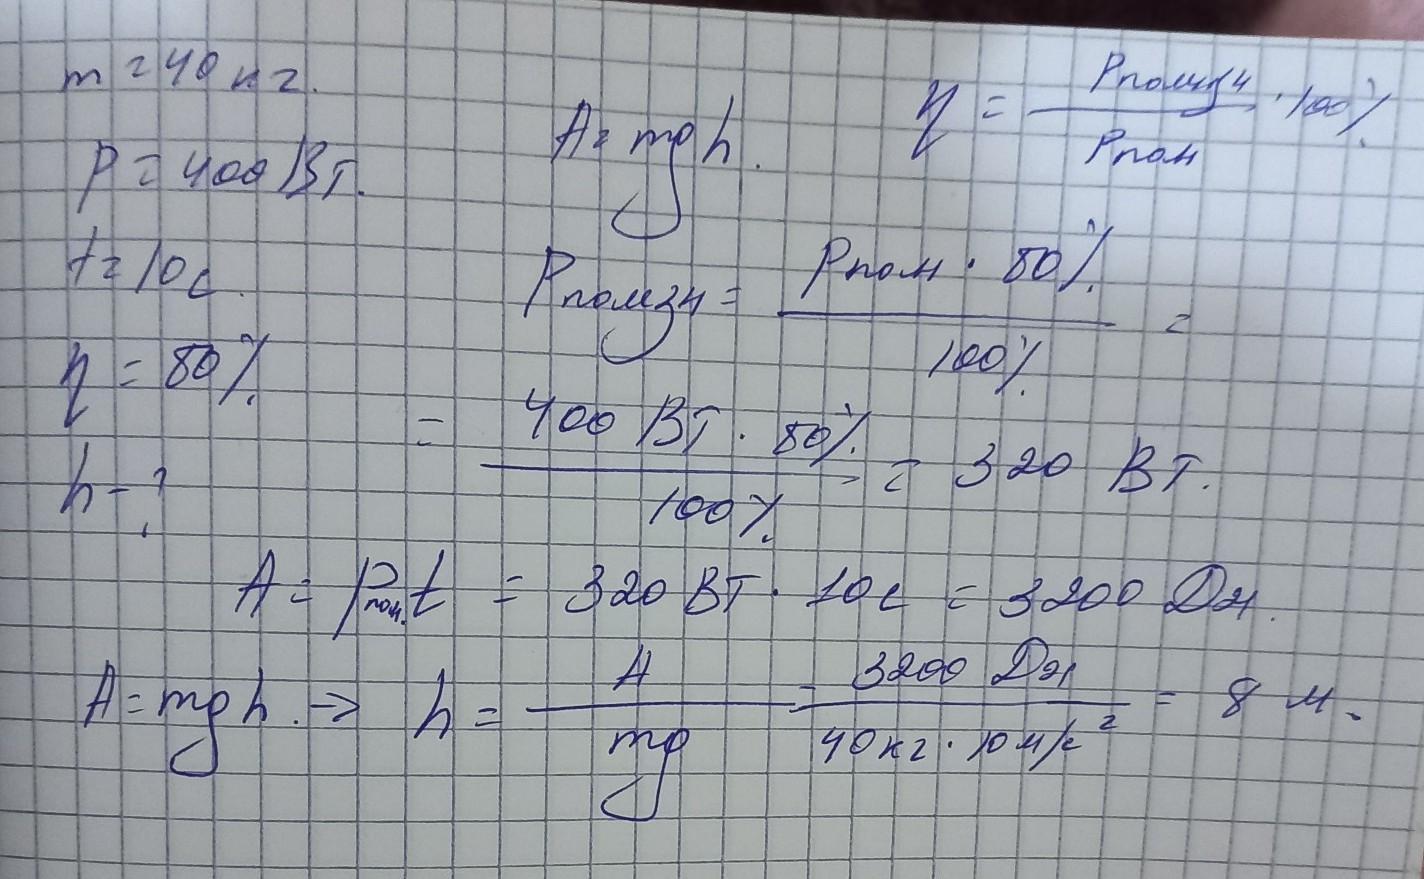 m = 40 кг.
P = 400 Вт.
t = 10 с.
η = 80%
h - ?
A = mgh.
η = Pполезн / Pполн · 100%
Pполезн = Pполн · 80% / 100% =
= 400 Вт · 80% / 100% = 320 Вт.
A = Pпол. t = 320 Вт · 10 с = 3200 Дж.
A = mgh. → h = A / mg = 3200 Дж / 40 кг · 10 м/с² = 8 м.